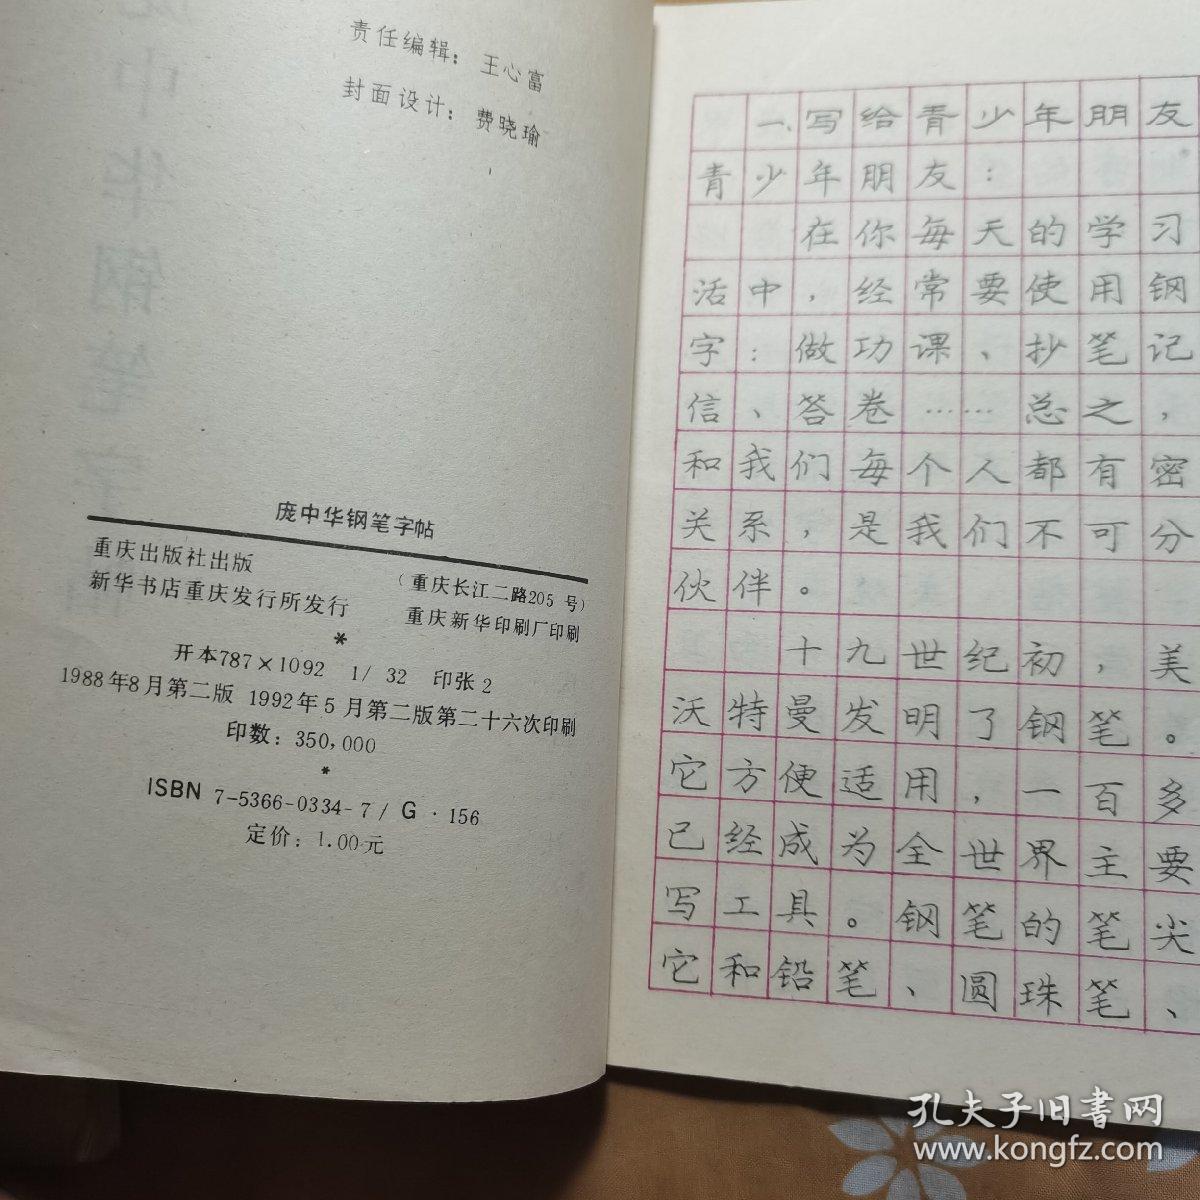 责任编辑：王心富
封面设计：费晓瑜
庞中华钢笔字帖
重庆出版社出版 （重庆长江二路205 号）
新华书店重庆发行所发行 重庆新华印刷厂印刷
*
开本787×1092 1/32 印张2
1988年8月第二版 1992年5月第二版第二十六次印刷
印数：350,000
*
ISBN 7-5366-0334-7/G·156
定价：1.00元
一、写给青少年朋友
青少年朋友：
在你每天的学习
活中，经常要使用钢
字：做功课、抄笔记
信、答卷……总之，
和我们每个人都有密
关系，是我们不可分
伙伴。
十九世纪初，美
沃特曼发明了钢笔。
它方便适用，一百多
已经成为全世界主要
写工具。钢笔的笔尖
它和铅笔、圆珠笔、
孔夫子旧书网
www.kongfz.com